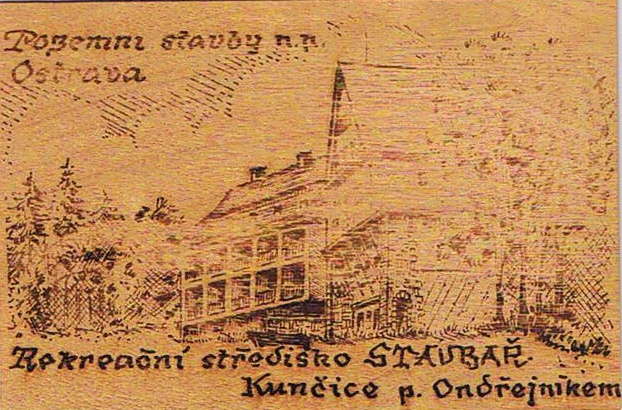 Pozemní stavby n.p.
Ostrava
Rekreační středisko STAVBAŘ.
Kunčice p. Ondřejníkem